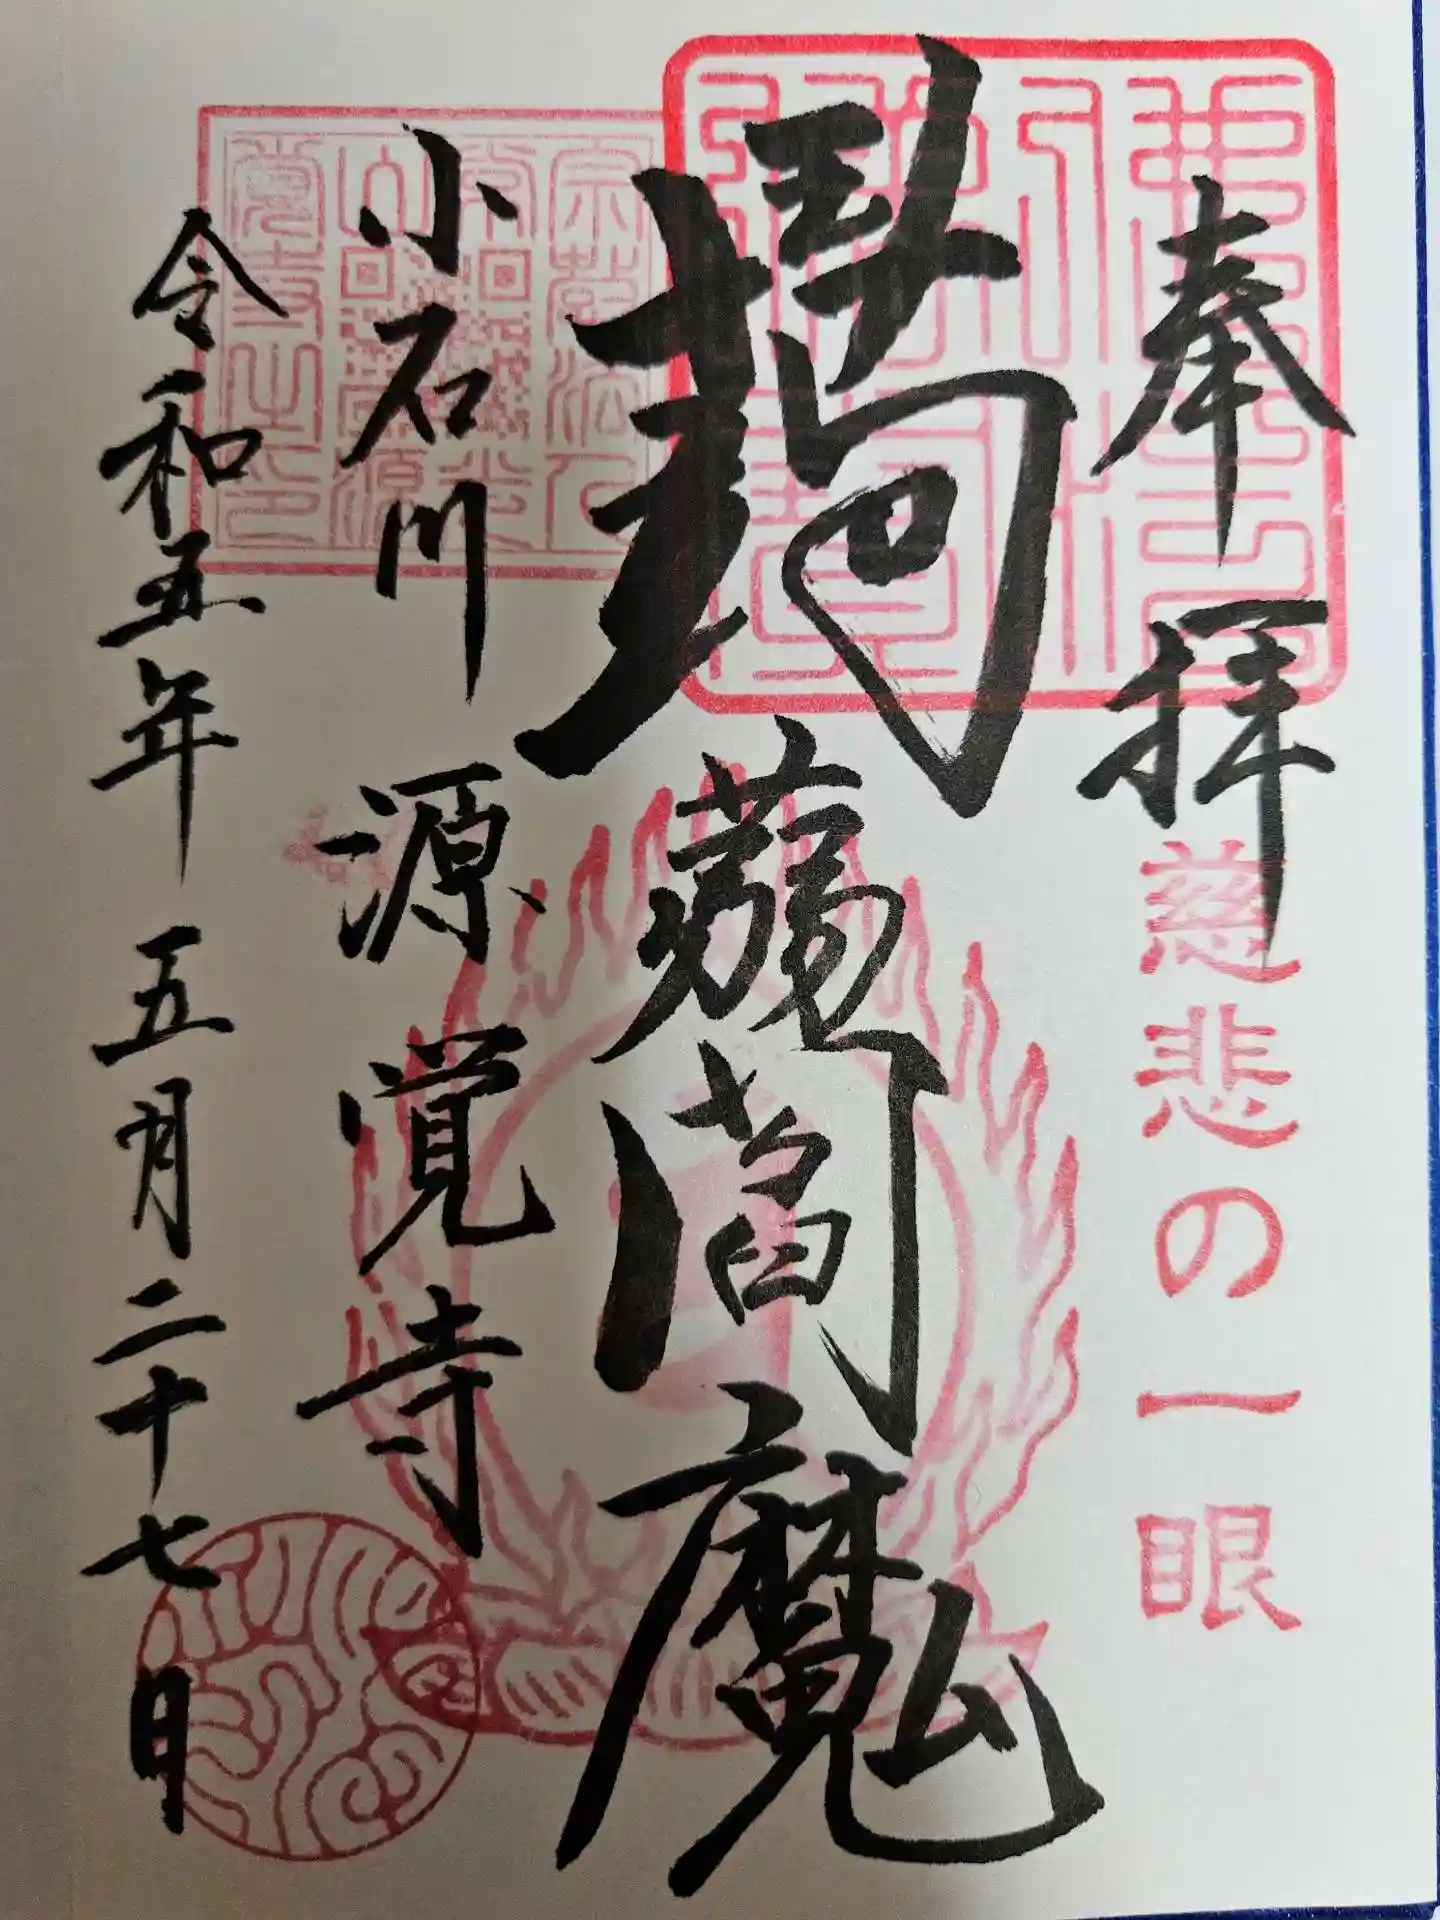 奉拝
慈悲の一眼
佛法僧寶
蒟蒻閻魔
小石川 源覚寺
令和五年 五月二十七日